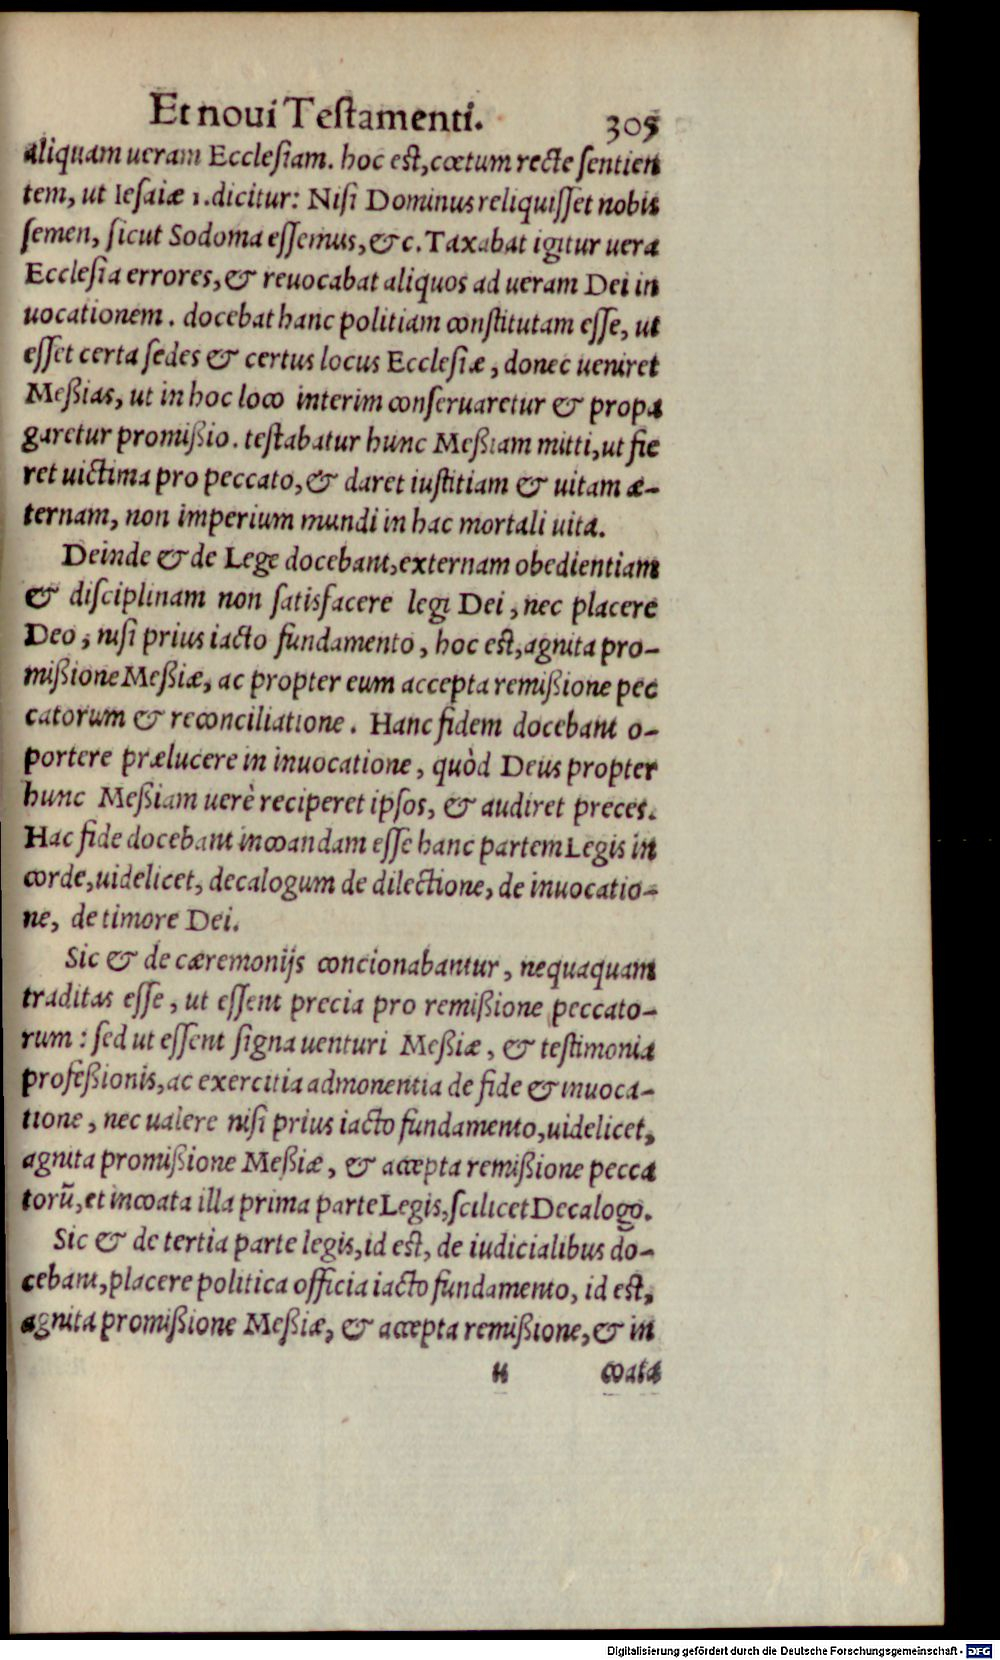 Et noui Teſtamenti. 305
aliquam ueram Eccleſiam. hoc eſt, cœtum recte ſentien
tem, ut Ieſaiæ 1. dicitur: Niſi Dominus reliquiſſet nobis
ſemen, ſicut Sodoma eſſemus, &c. Taxabat igitur uera
Eccleſia errores, & reuocabat aliquos ad ueram Dei in
uocationem. docebat hanc politiam conſtitutam eſſe, ut
eſſet certa ſedes & certus locus Eccleſiæ, donec ueniret
Meßias, ut in hoc loco interim conſeruaretur & propa
garetur promißio. teſtabatur hunc Meßiam mitti, ut fie
ret uictima pro peccato, & daret iuſtitiam & uitam æ-
ternam, non imperium mundi in hac mortali uita.
Deinde & de Lege docebant, externam obedientiam
& diſciplinam non ſatisfacere legi Dei, nec placere
Deo, niſi prius iacto fundamento, hoc eſt, agnita pro-
mißione Meßiæ, ac propter eum accepta remißione pec
catorum & reconciliatione. Hanc fidem docebant o-
portere prælucere in inuocatione, quòd Deus propter
hunc Meßiam uerè reciperet ipſos, & audiret preces.
Hac fide docebant incoandam eſſe hanc partem Legis in
corde, uidelicet, decalogum de dilectione, de inuocatio-
ne, de timore Dei.
Sic & de cæremonijs concionabantur, nequaquam
traditas eſſe, ut eſſent precia pro remißione peccato-
rum: ſed ut eſſent ſigna uenturi Meßiæ, & teſtimonia
profeßionis, ac exercitia admonentia de fide & inuoca-
tione, nec ualere niſi prius iacto fundamento, uidelicet,
agnita promißione Meßiæ, & accepta remißione pecca
torũ, et incoata illa prima parte Legis, ſcilicet Decalogo.
Sic & de tertia parte legis, id eſt, de iudicialibus do-
cebant, placere politica officia iacto fundamento, id eſt,
agnita promißione Meßiæ, & accepta remißione, & in
u coata
Digitalisierung gefördert durch die Deutsche Forschungsgemeinschaft - DFG